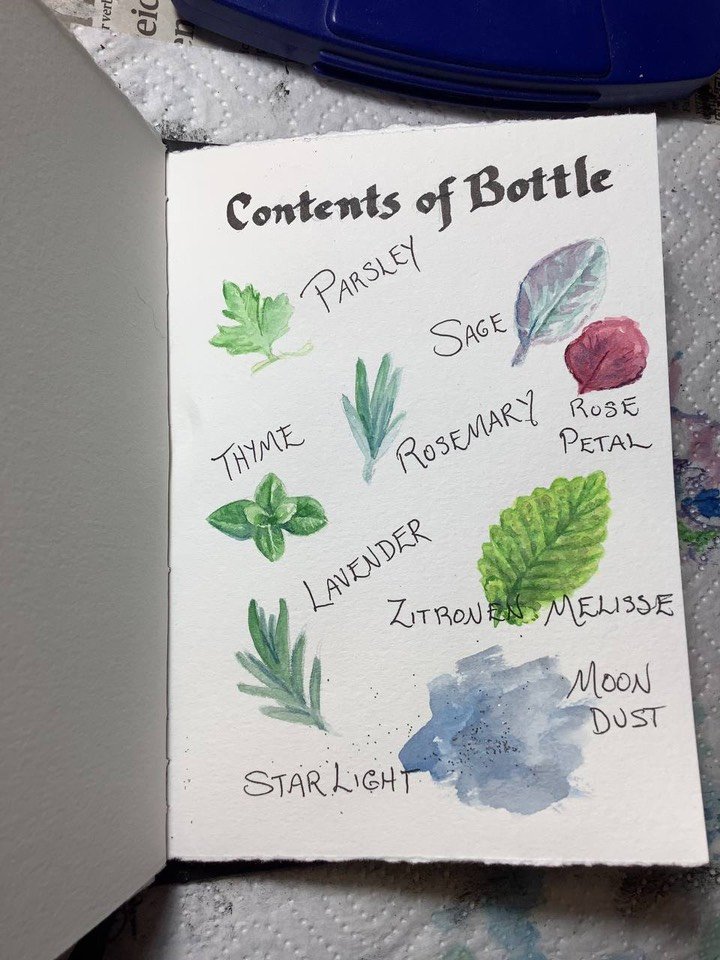 Contents of Bottle
PARSLEY
SAGE
ROSE
PETAL
THYME
ROSEMARY
LAVENDER
ZITRONEN MELISSE
MOON
DUST
STAR LIGHT